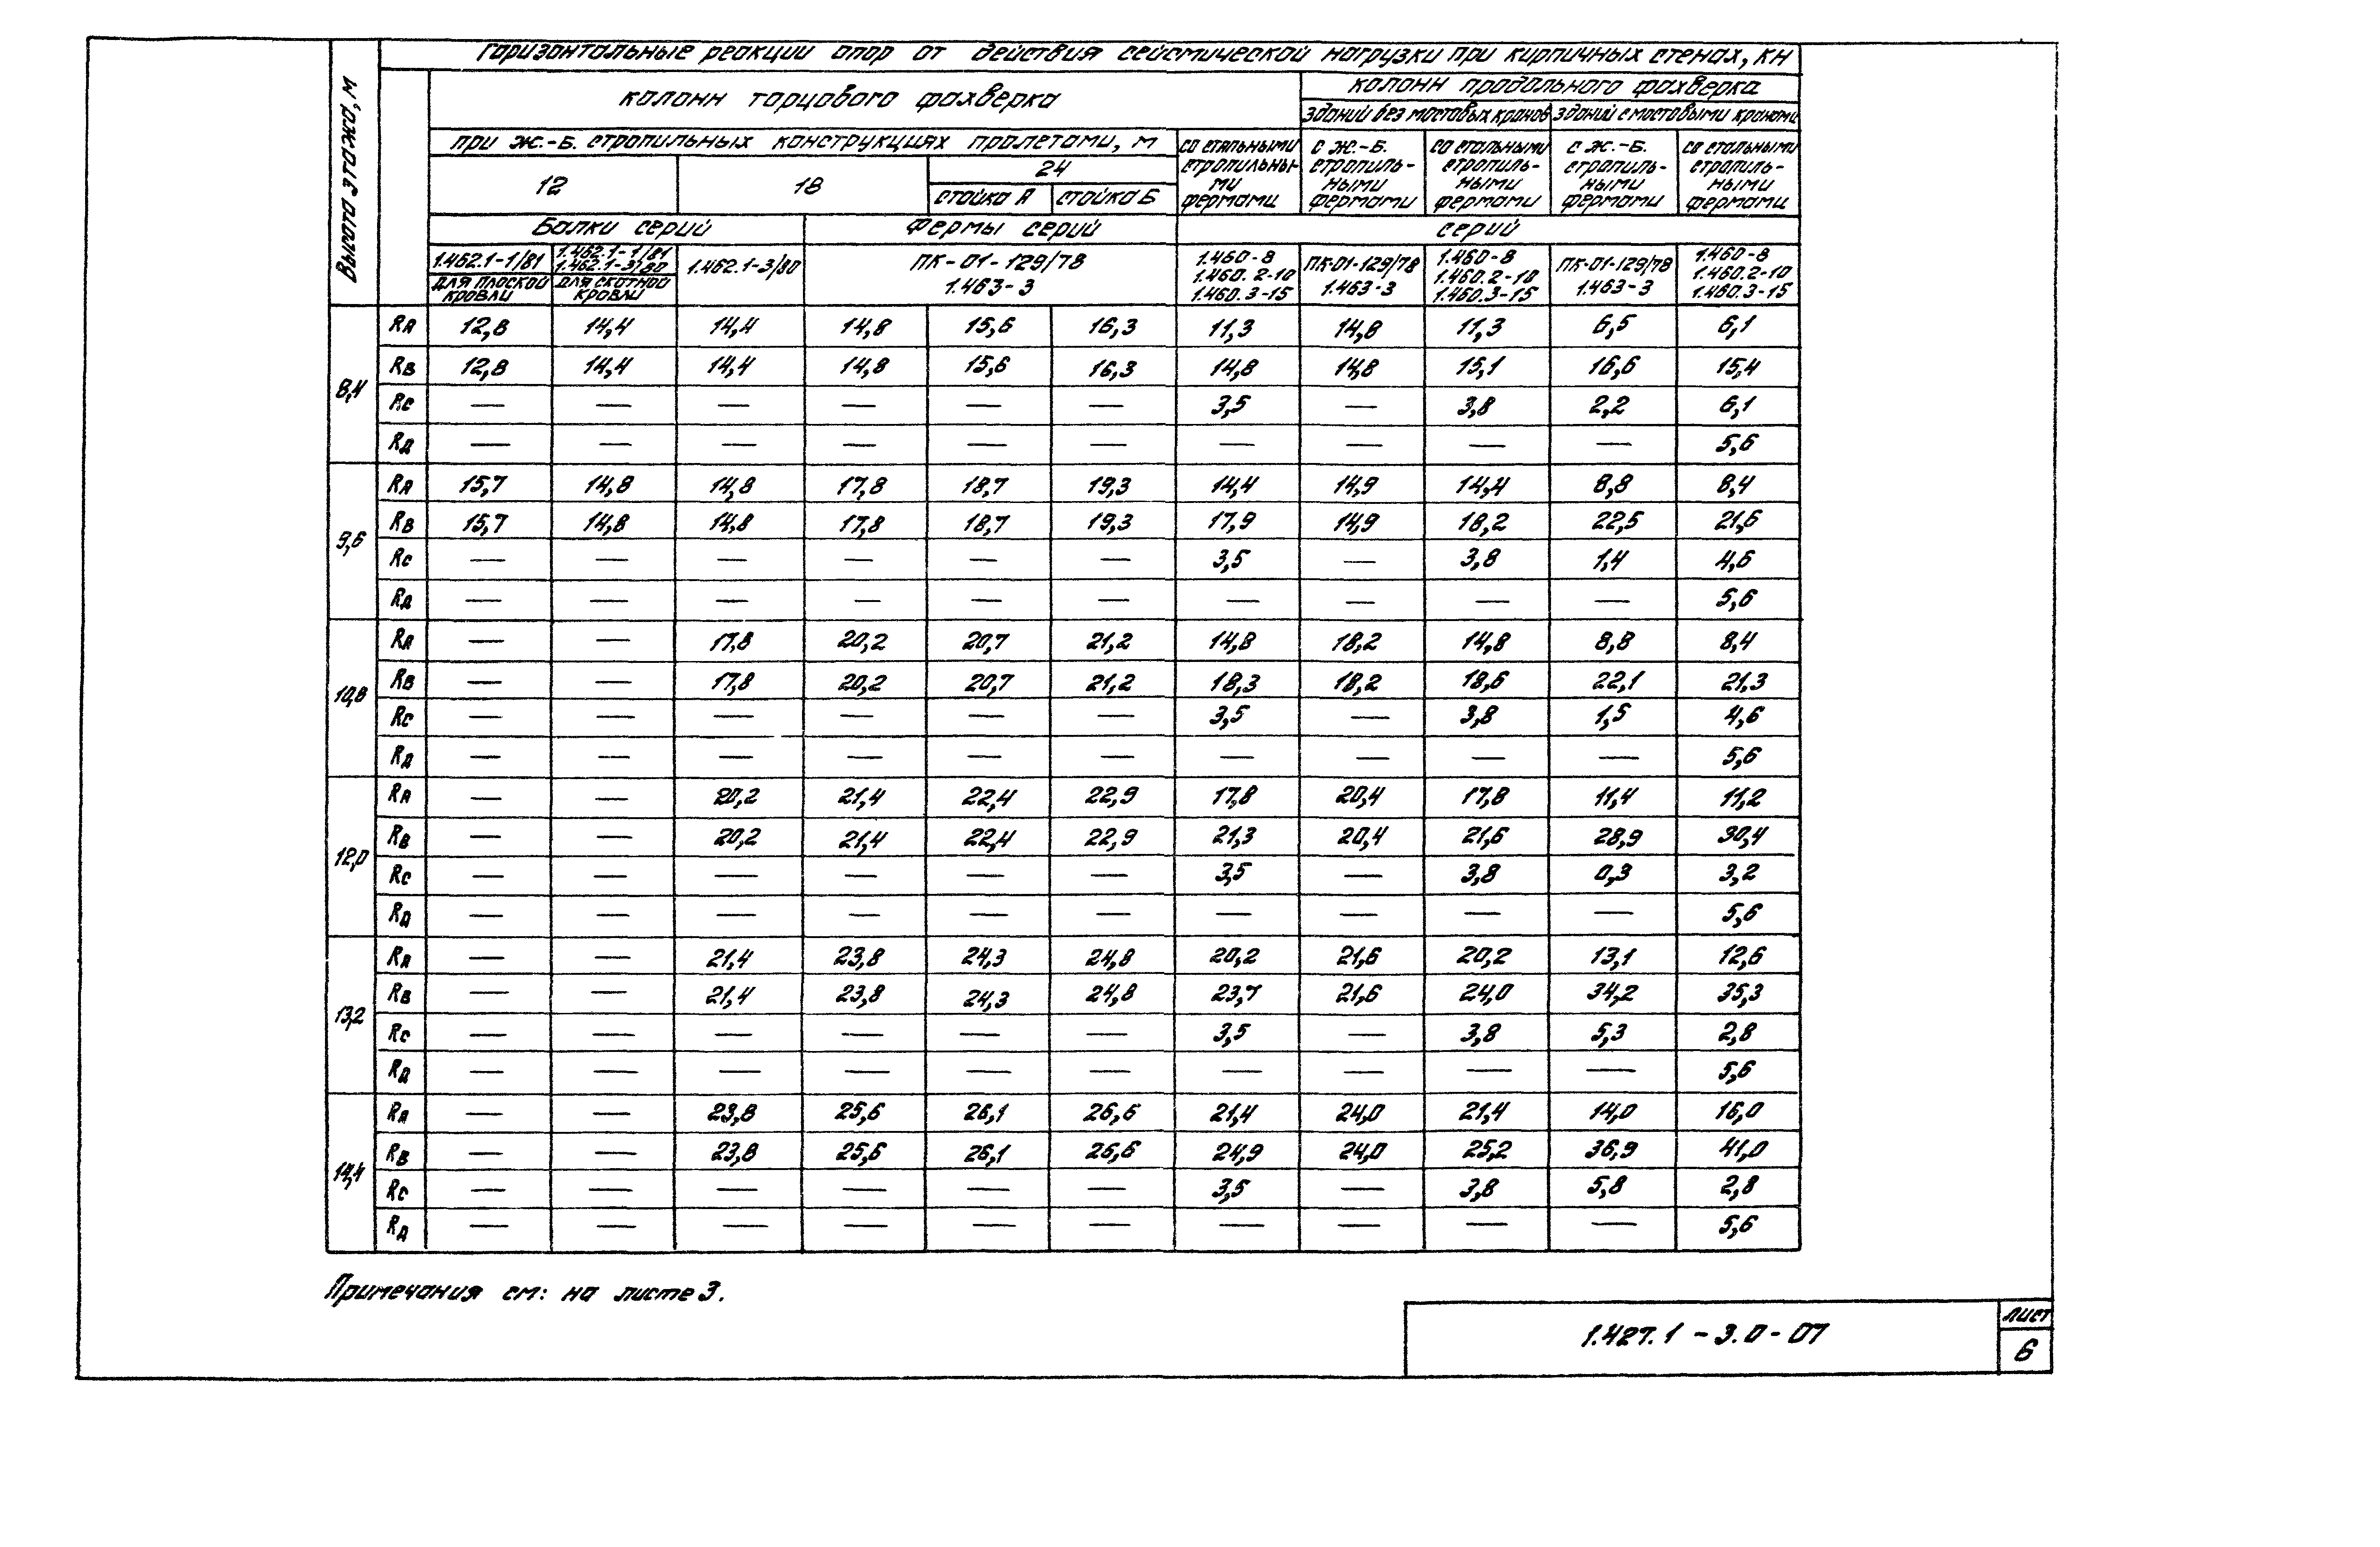 Горизонтальные реакции опор от действия сейсмической нагрузки при кирпичных стенах, кН
Высота этажа, м
колонн торцового фахверка
колонн продольного фахверка
зданий без мостовых кранов зданий с мостовыми кранами
при ж.-б. стропильных конструкциях пролетами, м
со стальными стропильными фермами
с ж.-б. стропильными фермами
со стальными стропильными фермами
с ж.-б. стропильными фермами
со стальными стропильными фермами
12 18 24
стойка А стойка Б
Балки серий Фермы серий серий
1.462.1-1/81 для плоской кровли
1.462.1-1/81 1.462.1-3/80 для скатной кровли
1.462.1-3/80
ПК-01-129/78 1.463-3
1.460-8 1.460.2-10 1.460.3-15
ПК-01-129/78 1.463-3
1.460-8 1.460.2-10 1.460.3-15
ПК-01-129/78 1.463-3
1.460-8 1.460.2-10 1.460.3-15
8,4
RА 12,8 14,4 14,4 14,8 15,6 16,3 11,3 14,8 11,3 6,5 6,1
RВ 12,8 14,4 14,4 14,8 15,6 16,3 14,8 14,8 15,1 16,6 15,4
RС — — — — — — 3,5 — 3,8 2,2 6,1
RД — — — — — — — — — — 5,6
9,6
RА 15,7 14,8 14,8 17,8 18,7 19,3 14,4 14,9 14,4 8,8 8,4
RВ 15,7 14,8 14,8 17,8 18,7 19,3 17,9 14,9 18,2 22,5 21,6
RС — — — — — — 3,5 — 3,8 1,4 4,6
RД — — — — — — — — — — 5,6
10,8
RА — — 17,8 20,2 20,7 21,2 14,8 18,2 14,8 8,8 8,4
RВ — — 17,8 20,2 20,7 21,2 18,3 18,2 18,6 22,1 21,3
RС — — — — — — 3,5 — 3,8 1,5 4,6
RД — — — — — — — — — — 5,6
12,0
RА — — 20,2 21,4 22,4 22,9 17,8 20,4 17,8 11,4 11,2
RВ — — 20,2 21,4 22,4 22,9 21,3 20,4 21,6 28,9 30,4
RС — — — — — — 3,5 — 3,8 0,3 3,2
RД — — — — — — — — — — 5,6
13,2
RА — — 21,4 23,8 24,3 24,8 20,2 21,6 20,2 13,1 12,6
RВ — — 21,4 23,8 24,3 24,8 23,7 21,6 24,0 34,2 35,3
RС — — — — — — 3,5 — 3,8 5,3 2,8
RД — — — — — — — — — — 5,6
14,4
RА — — 23,8 25,6 26,1 26,6 21,4 24,0 21,4 14,0 16,0
RВ — — 23,8 25,6 26,1 26,6 24,9 24,0 25,2 36,9 41,0
RС — — — — — — 3,5 — 3,8 5,8 2,8
RД — — — — — — — — — — 5,6
Примечания см: на листе 3.
1.427.1-3.0-07
лист
6